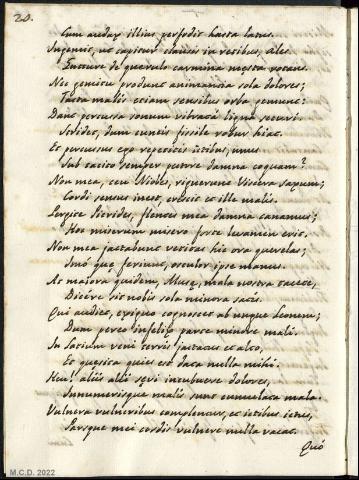 20.
Cum audax illius perfodit hasta latus.
Ingemit, ut capitur clausis in retibus, ales.
Gutture de querulo carmina mœsta vocans.
Nec gemitu produnt animantia sola dolores;
Tacta malis etiam sensibus orba gemunt:
Dant percussa sonum vibratâ ligna securi
Stridet, dum cuneis fissile robur hiat.
Et percussus ego repetitis ictibus, unus
Sub tacito semper pectore damna coquam?
Non mea, ceu Niobes, riguerunt Viscera saxum;
Cordi sensus inest, crescit et ille malis.
Pergite Pierides, flentes mea damna canamus;
Hoc miserum misero forte levamen erit.
Non mea jactabunt vetitas hic ora querelas;
Imò quæ feriunt, osculor ipse manus.
At majora quidem, Musæ, mala nostra tacete,
Dicere sit nobis sola minora satis.
Qui audiet, exiguo cognoscet ab ungue Leonem;
Dum pereo infelix parte minore mali.
In solium veni terris jactatus et alto,
Et quæsita quies est data nulla mihi.
Heu! aliis alii sævi incubuere dolores,
Innumerisque malis sunt cumulata mala.
Vulnera vulneribus complentur, et ictibus ictus,
Parsque mei cordis vulnere nulla vacat.
Quó
M.C.D. 2022